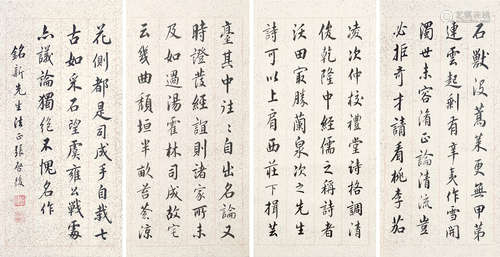 石獸沒蒿萊無甲第
連雲起剩有辛夷作雪開
濁世未容淆正論清流豈
必拒奇才請看桃李茄
凌次仲校禮堂詩格調清
俊乾隆中經儒之稱詩者
沃田最勝蘭泉次之先生
詩可以上肩西莊下揖芸
臺其中注〻自出名論又
時證發經誼則諸家所未
及如過湯霍林司成故宅
云幾曲頹垣半畝苔荒涼
花側都是司成手自栽七
古如采石望虞雍公戰處
亦議論獨絕不愧名作
銘新先生法正張啓後